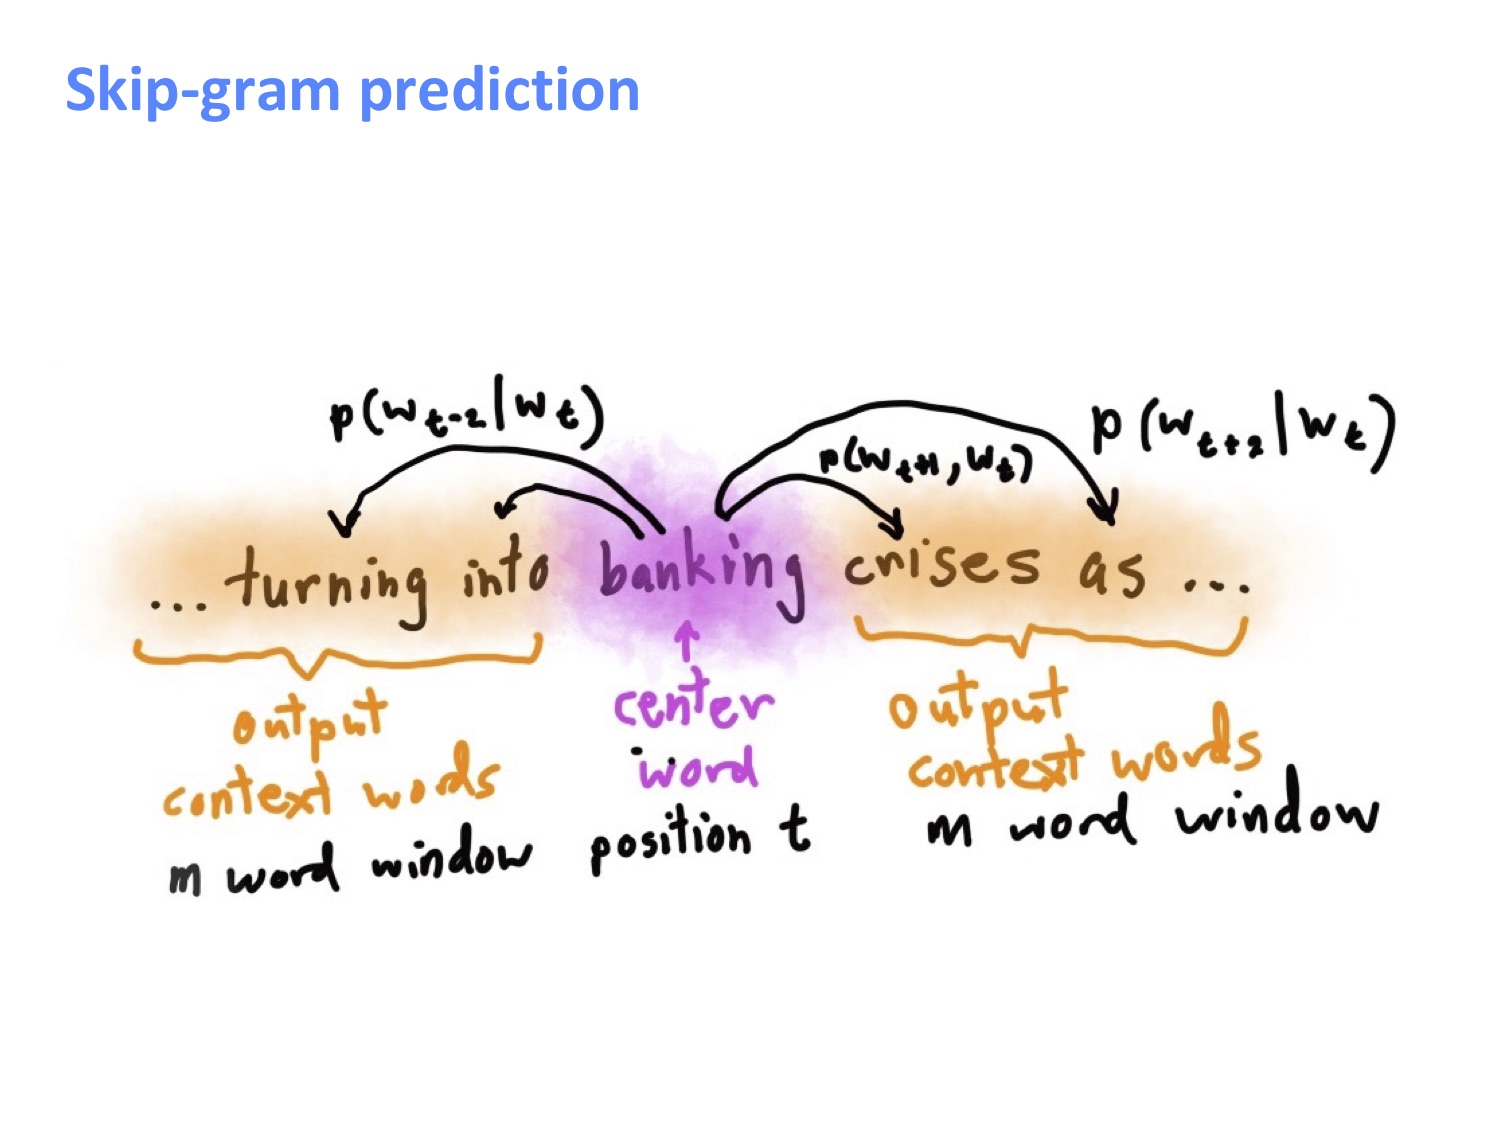 Skip-gram prediction
p(w_{t-2}|w_t)
p(w_{t+1}, w_t)
p(w_{t+2}|w_t)
... turning into banking crises as ...
output
context words
m word window
center
word
position t
output
context words
m word window